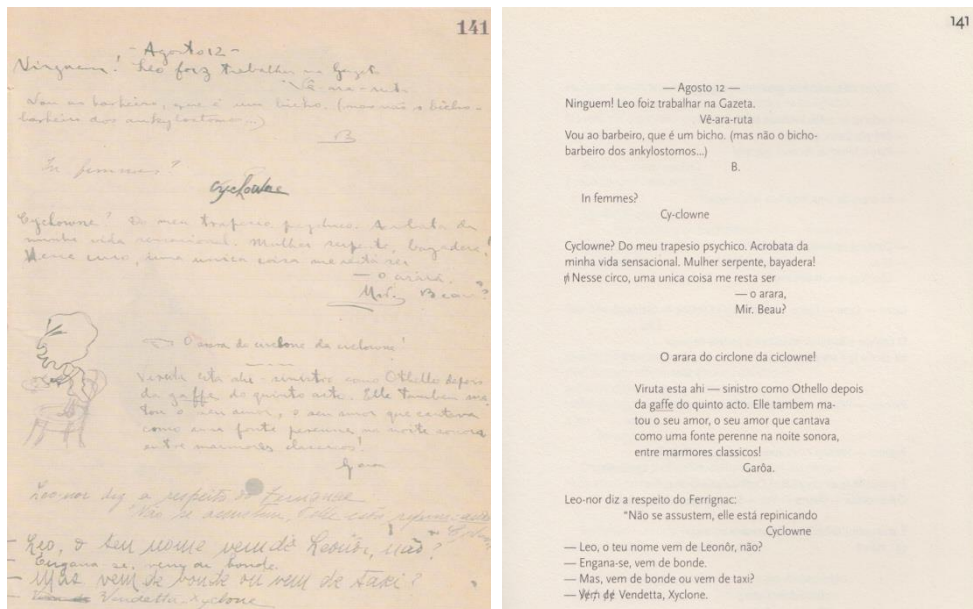 141
- Agosto 12 -
Ninguem! Leo foiz trabalhar na Gazeta
Vê-ara-ruta
Vou ao barbeiro, que é um bicho. (mas não o bicho-
barbeiro dos ankylostomos...)
B
In femmes?
Cyclowne
Cyclowne? Do meu trapesio psychico. Acrobata da
minha vida sensacional. Mulher serpente, bayadera!
Nesse circo, uma unica coisa me resta ser
— o arara,
Mir. Beau?
O arara do circlone da ciclowne!
Viruta esta ahi - sinistro como Othello depois
da gaffe do quinto acto. Elle tambem ma-
tou o seu amor, o seu amor que cantava
como uma fonte perenne na noite sonora,
entre marmores classicos!
Garôa
Leo-nor diz a respeito do Ferrignac
"Não se assustem, elle está
— Leo, o teu nome vem de Leonôr, não?
— Engana-se, vem de bonde.
— Mas vem de bonde ou vem de taxi?
— Vendetta, Xyclone.
141
— Agosto 12 —
Ninguem! Leo foiz trabalhar na Gazeta.
Vê-ara-ruta
Vou ao barbeiro, que é um bicho. (mas não o bicho-
barbeiro dos ankylostomos...)
B.
In femmes?
Cy-clowne
Cyclowne? Do meu trapesio psychico. Acrobata da
minha vida sensacional. Mulher serpente, bayadera!
Nesse circo, uma unica coisa me resta ser
— o arara,
Mir. Beau?
O arara do circlone da ciclowne!
Viruta esta ahi — sinistro como Othello depois
da gaffe do quinto acto. Elle tambem ma-
tou o seu amor, o seu amor que cantava
como uma fonte perenne na noite sonora,
entre marmores classicos!
Garôa.
Leo-nor diz a respeito do Ferrignac:
"Não se assustem, elle está repinicando
Cyclowne
— Leo, o teu nome vem de Leonôr, não?
— Engana-se, vem de bonde.
— Mas, vem de bonde ou vem de taxi?
— Vem de Vendetta, Xyclone.